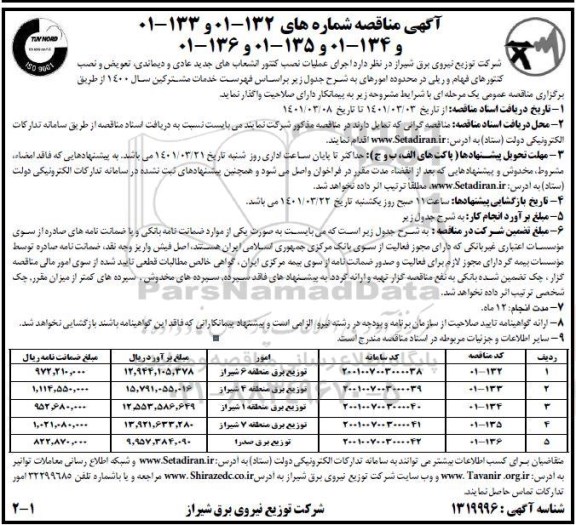 آگهی مناقصه شماره های ۱۳۲-۰۱و ۱۳۳-۰۱
و ۱۳۴-۰۱و ۱۳۵-۰۱و ۱۳۶-۰۱
TUV NORD
ISO 9001
شرکت توزیع نیروی برق شیراز در نظر دارد اجرای عملیات نصب کنتور انشعاب های جدید عادی و دیماندی، تعویض و نصب
کنتورهای فهام و ریلی در محدوده امورهای به شرح جدول زیر براساس فهرست خدمات مشترکین سال ۱۴۰۰ از طریق
برگزاری مناقصه عمومی یک مرحله ای با شرایط مشروحه زیر به پیمانکار دارای صلاحیت واگذار نماید.
۱- تاریخ دریافت اسناد مناقصه: از تاریخ ۱۴۰۱/۰۳/۰۳ تا تاریخ ۱۴۰۱/۰۳/۰۸
۲- محل دریافت اسناد مناقصه: مناقصه گرانی که تمایل دارند در مناقصه مذکور شرکت نمایند می بایست نسبت به دریافت اسناد مناقصه از طریق سامانه تدارکات
الکترونیکی دولت (ستاد) به آدرس: www.Setadiran.ir اقدام نمایند.
۳- مهلت تحویل پیشنهادها ( پاکت های الف، ب و ج): حداکثر تا پایان ساعت اداری روز شنبه تاریخ ۱۴۰۱/۰۳/۲۱ می باشد. به پیشنهادهایی که فاقد امضاء،
مشروط، مخدوش و پیشنهادهایی که بعد از انقضاء مدت مقرر در فراخوان واصل می شود و همچنین پیشنهادهای ثبت نشده در سامانه تدارکات الکترونیکی دولت
(ستاد) به آدرس: www.Setadiran.ir، مطلقا ترتیب اثر داده نخواهد شد.
۴- تاریخ بازگشایی پیشنهادها: ساعت ۱۱ صبح روز یکشنبه تاریخ ۱۴۰۱/۰۳/۲۲ می باشد.
۵- مبلغ برآورد انجام کار: به شرح جدول زیر
۶- مبلغ تضمین شرکت در مناقصه : به شرح جدول زیر است که می بایست به صورت یکی از موارد ضمانت نامه بانکی و یا ضمانت نامه های صادره از سوی
مؤسسات اعتباری غیربانکی که دارای مجوز فعالیت از سوی بانک مرکزی جمهوری اسلامی ایران هستند، اصل فیش واریز وجه نقد، ضمانت نامه صادره توسط
مؤسسات بیمه گر دارای مجوز لازم برای فعالیت و صدور ضمانت نامه از سوی بیمه مرکزی ایران، گواهی خالص مطالبات قطعی تایید شده از سوی امور مالی مناقصه
گزار ، چک تضمین شده بانکی به نفع مناقصه گزار تهیه و ارائه گردد به پیشنهاد های فاقد سپرده، سپرده های مخدوش ، سپرده های کمتر از میزان مقرر، چک
شخصی ترتیب اثر داده نخواهد شد.
۷- مدت انجام: ۱۲ ماه.
۸- ارائه گواهینامه تایید صلاحیت از سازمان برنامه و بودجه در رشته نیرو الزامی است و پیشنهاد پیمانکارانی که فاقد این گواهینامه باشند بازگشایی نخواهد شد.
۹- سایر اطلاعات و جزئیات مربوطه در اسناد مناقصه مندرج است.
ردیف کد مناقصه کد سامانه امور مبلغ برآورد ریال مبلغ ضمانت نامه ریال
۱ ۰۱-۱۳۲ ۲۰۰۱۰۰۷۰۰۳۰۰۰۰۳۸ توزیع برق منطقه ۶ شیراز ۱۲,۹۴۴,۱۰۵,۳۷۸ ۹۷۲,۲۱۰,۰۰۰
۲ ۰۱-۱۳۳ ۲۰۰۱۰۰۷۰۰۳۰۰۰۰۳۹ توزیع برق منطقه ۴ شیراز ۱۵,۷۹۱,۰۵۵,۰۱۶ ۱,۱۱۴,۵۵۰,۰۰۰
۳ ۰۱-۱۳۴ ۲۰۰۱۰۰۷۰۰۳۰۰۰۰۴۰ توزیع برق منطقه ۱ شیراز ۱۲,۵۵۳,۵۸۶,۶۴۹ ۹۵۲,۶۸۰,۰۰۰
۴ ۰۱-۱۳۵ ۲۰۰۱۰۰۷۰۰۳۰۰۰۰۴۱ توزیع برق منطقه ۷ شیراز ۱۳,۹۲۱,۶۳۳,۲۸۰ ۱,۰۲۱,۰۸۰,۰۰۰
۵ ۰۱-۱۳۶ ۲۰۰۱۰۰۷۰۰۳۰۰۰۰۴۲ توزیع برق صدرا ۹,۹۵۷,۳۸۴,۰۹۰ ۸۲۲,۸۷۰,۰۰۰
متقاضیان برای کسب اطلاعات بیشتر می توانند به سامانه تدارکات الکترونیکی دولت (ستاد) به آدرس: www.Setadiran.ir و شبکه اطلاع رسانی معاملات توانیر
به آدرس: www. Tavanir .org.ir و وب سایت شرکت توزیع نیروی برق شیراز به آدرس: www. Shirazedc.co.ir مراجعه و یا باشماره تلفن ۳۲۲۹۹۶۸۵ امور
تدارکات تماس حاصل نمایند.
شناسه آگهی : ۱۳۱۹۹۹۶ شرکت توزیع نیروی برق شیراز ۲-۱
ParsNamadData
۰۲۱-۸۸۳۴۹۶۷۰-۵